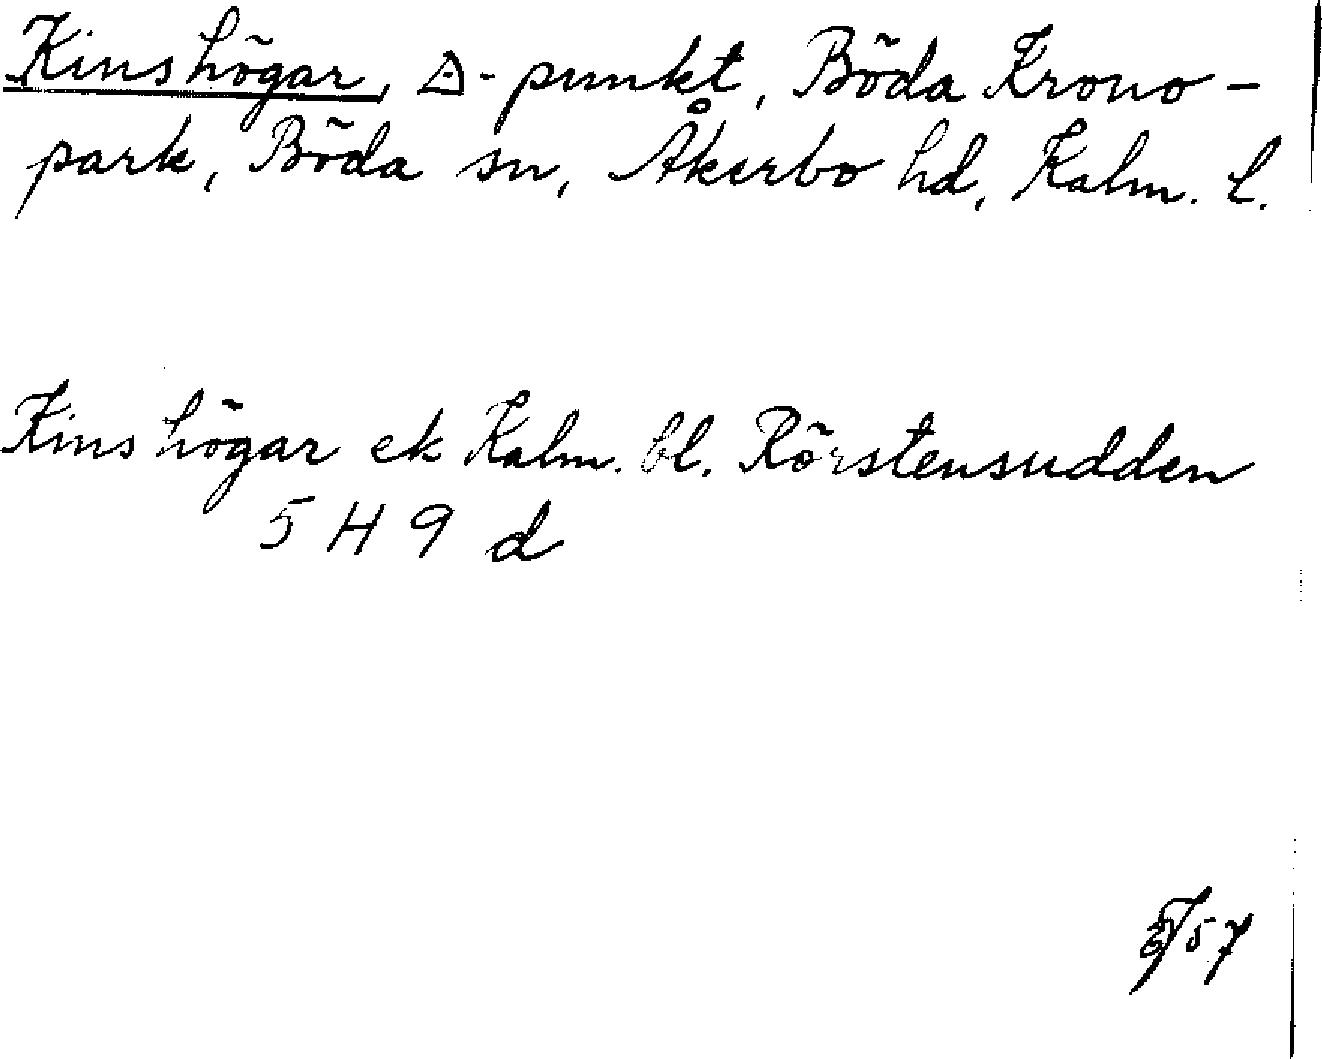 Kinshögar, Δ-punkt, Böda Krono-
park, Böda sn, Åkerbo hd, Kalm. l.
Kinshögar ek Kalm. bl. Rörstensudden
5 H 9 d
57